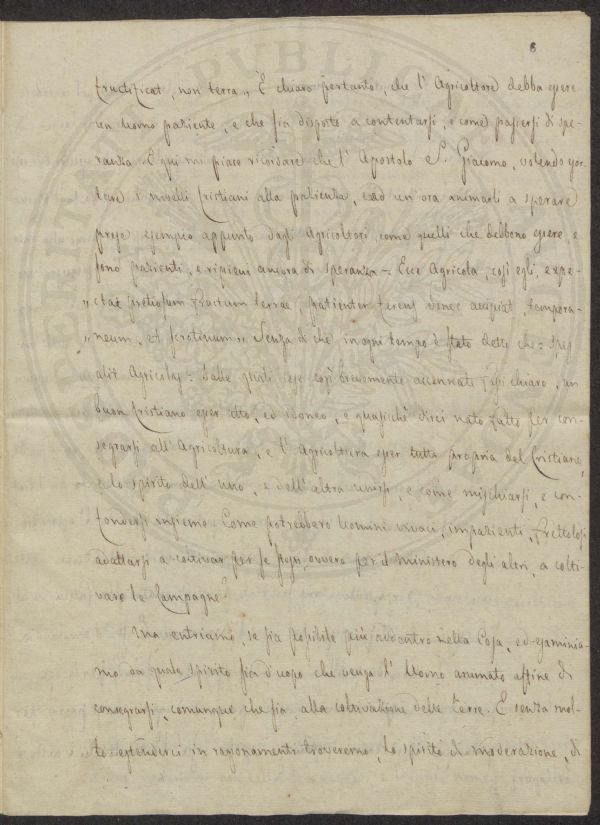 8
fructificat, non terra„ È chiaro pertanto, che l' Agricoltore debba essere
un Uomo paziente, e che sia disposto a contentarsi, e come pascersi di spe-
ranza. E qui mi piace ricordare che l' Apostolo S. Giacomo, volendo
i novelli Cristiani alla pazienza, ed un' ora animarli a sperare
prese esempio appunto dagli Agricoltori, come quelli che debbono essere, e
sono pazienti, e ripieni ancora di speranza = Ecce Agricola, così egli, expe-
„ctat pretiosum fructum terrae, patienter ferens donec accipiat, tempora-
„neum, et serotinum„ Senza di che in ogni tempo è stato detto che = Spes
alit Agricolas = Dalle quali cose così brevemente accennate fassi chiaro, un
buon Cristiano esser atto, ed idoneo, e quasichè direi nato fatto per con-
segrarsi all' Agricoltura, e l' Agricoltura esser tutta propria del Cristiano,
e lo spirito dell' uno, e dell' altra unirsi, e come mischiarsi, e con-
fondersi insieme. Come potrebbero Uomini vivaci, impazienti, frettolosi
adattarsi a coltivar per se stessi, ovvero per il ministero degli altri, a colti-
vare le Campagne?
Ma entriamo, se sia possibile più addentro nella Cosa, ed esaminia-
mo da quale spirito sia d'uopo che venga l' Uomo animato affine di
consegrarsi, comunque che sia alla coltivazione delle terre. E senza mol-
to estenderci in ragionamenti troveremo, lo spirito di moderazione, di